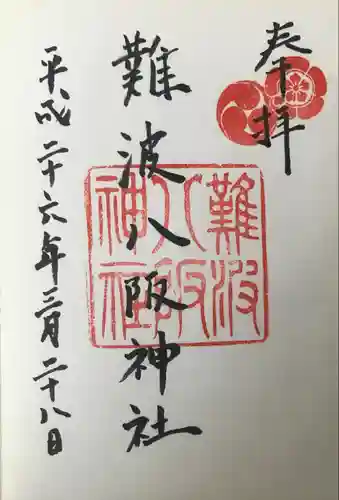 奉拝
難波八阪神社
難波
八阪
神社
平成二十六年三月二十八日